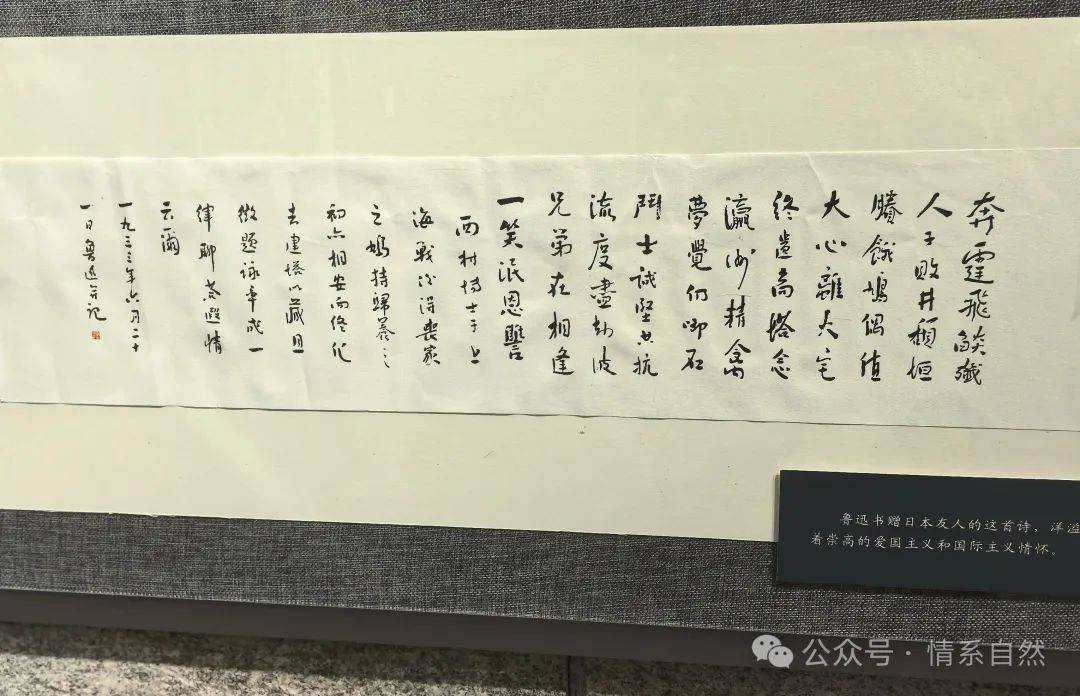 奔霆飛燄殲
人子敗井頹垣
賸餓鳩偶值
大心離火宅
終遺高塔念
瀛洲精禽
夢覺仍啣石
鬥士誠堅共抗
流度盡劫波
兄弟在相逢
一笑泯恩讐
西村博士于上
海戰後得喪家
之鳩持歸養之
初亦相安而終化
去建塔以藏且
徵題詠率成一
律聊荅遐情
云爾
一九三三年六月二十
一日魯迅并記
鲁迅书赠日本友人的这首诗，洋溢
着崇高的爱国主义和国际主义情怀。
公众号·情系自然